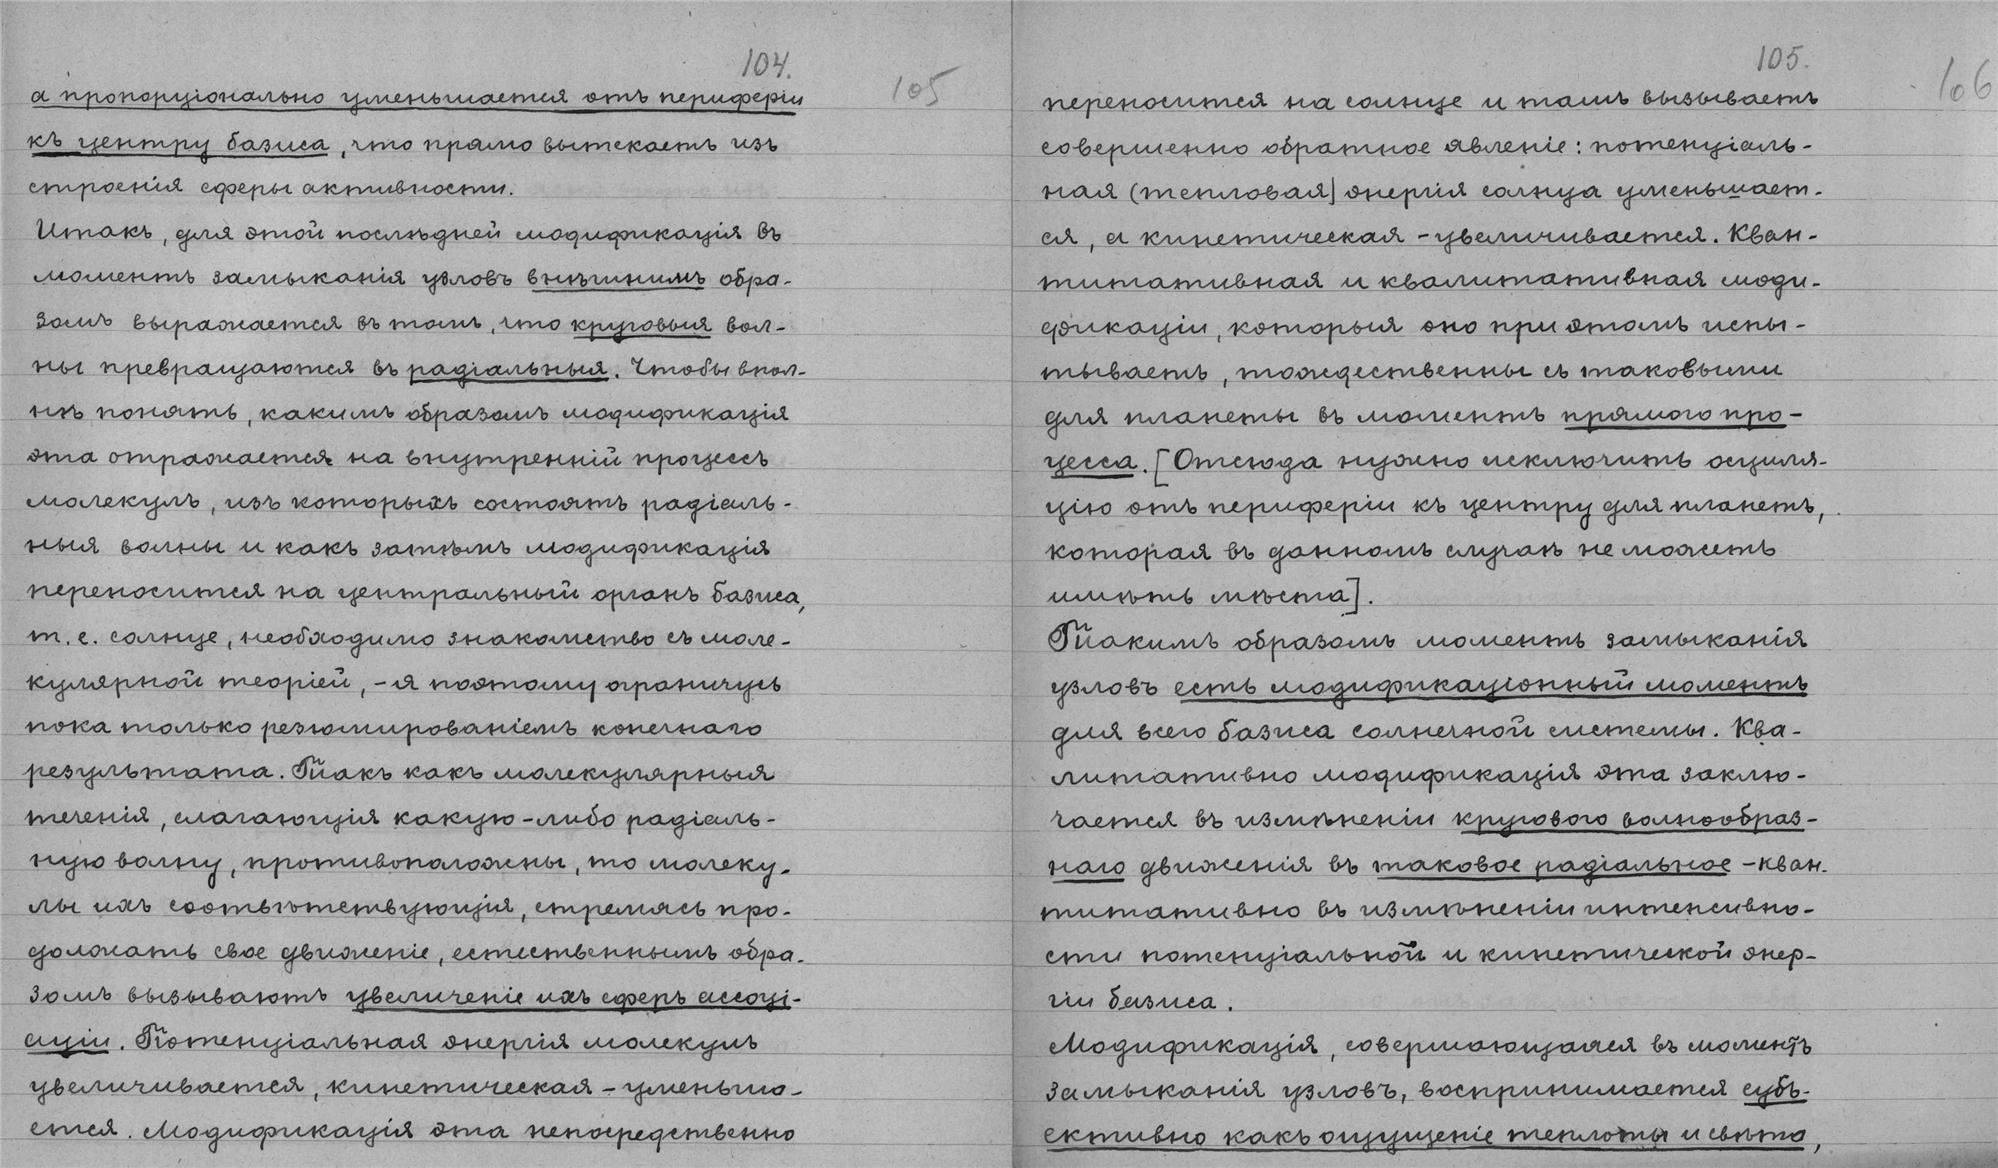 104.
105
а пропорціонально уменьшается отъ периферіи
къ центру базиса, что прямо вытекаетъ изъ
строенія сферы активности.
Итакъ, для этой послѣдней модификація въ
моментъ замыканія узловъ внѣшнимъ обра-
зомъ выражается въ томъ, что круговыя вол-
ны превращаются въ радіальныя. Чтобы впол-
нѣ понять, какимъ образомъ модификація
эта отражается на внутренній процессъ
молекулъ, изъ которыхъ состоятъ радіаль-
ныя волны и какъ затѣмъ модификація
переносится на центральный органъ базиса,
т. е. солнце, необходимо знакомство съ моле-
кулярной теоріей, - я поэтому ограничусь
пока только резюмированіемъ конечнаго
результата. Такъ какъ молекулярныя
теченія, слагающія какую-либо радіаль-
ную волну, противоположны, то молеку-
лы ихъ соотвѣтствующія, стремясь про-
должать свое движеніе, естественнымъ обра-
зомъ вызываютъ увеличеніе ихъ сферъ ассоці-
аціи. Потенціальная энергія молекулъ
увеличивается, кинетическая - уменьша-
ется. Модификація эта непосредственно
105.
106
переносится на солнце и тамъ вызываетъ
совершенно обратное явленіе: потенціаль-
ная (тепловая) энергія солнца уменьшает-
ся, а кинетическая - увеличивается. Кван-
титативная и квалитативная моди-
фикаціи, которыя оно при этомъ испы-
тываетъ, тождественны съ таковыми
для планеты въ моментъ прямого про-
цесса. [Отсюда нужно исключить осциля-
цію отъ периферіи къ центру для планетъ,
которая въ данномъ случаѣ не можетъ
имѣть мѣста].
Такимъ образомъ моментъ замыканія
узловъ есть модификаціонный моментъ
для всего базиса солнечной системы. Ква-
литативно модификація эта заклю-
чается въ измѣненіи кругового волнообраз-
наго движенія въ таковое радіальное - кван-
титативно въ измѣненіи интенсивно-
сти потенціальной и кинетической энер-
гіи базиса.
Модификація, совершающаяся въ моментъ
замыканія узловъ, воспринимается субъ-
ективно какъ ощущеніе теплоты и свѣта,